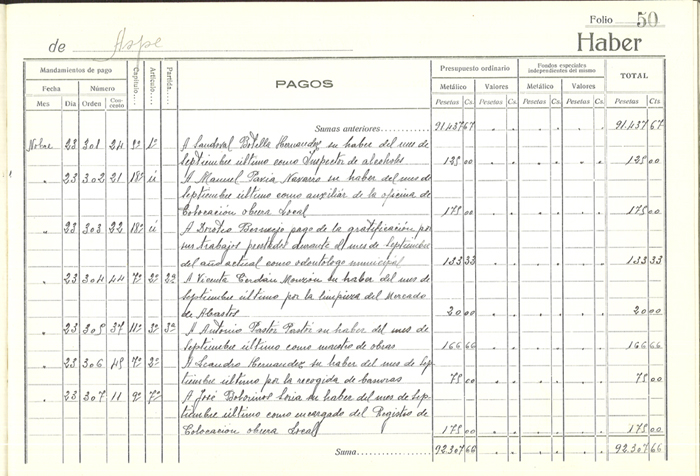 Folio 50
de Aspe Haber
Mandamientos de pago Capítulo Artículo Partida PAGOS Presupuesto ordinario Fondos especiales independientes del mismo TOTAL
Fecha Número Metálico Valores Metálico Valores
Mes Día Orden Concepto Pesetas Cs. Pesetas Cs. Pesetas Cs. Pesetas Cs. Pesetas Cts
Sumas anteriores 91.437 67 91.437 67
Nobre 23 301 24 8º 1º A Sandoval Botella Hernandez su haber del mes de
septiembre último como Inspector de alcohols 125 00 125 00
" 23 302 21 18º ú A Manuel Pavia Navarro su haber del mes de
septiembre último como auxiliar de la oficina de
Colocación obrera Local 175 00 175 00
" 23 303 22 18º ú A Doroteo Bermejo pago de la gratificación por
sus trabajos prestados durante el mes de Septiembre
del año actual como odontólogo municipal 133 33 133 33
" 23 304 44 7º 2º 2ª A Vicenta Cerdán Monzón su haber del mes de
Septiembre último por la limpieza del Mercado
de Abastos 20 00 20 00
" 23 305 37 11º 3º 3ª A Antonio Pastor Pastor su haber del mes de
Septiembre último como maestro de obras 166 66 166 66
" 23 306 48 7º 2º A Leandro Hernandez su haber del mes de Sep-
tiembre último por la recogida de basuras 75 00 75 00
" 23 307 11 9º 7º A José su haber del mes de Sep-
tiembre último como encargado del Registro de
Colocación obrera Local 175 00 175 00
Suma 92.307 66 92.307 66